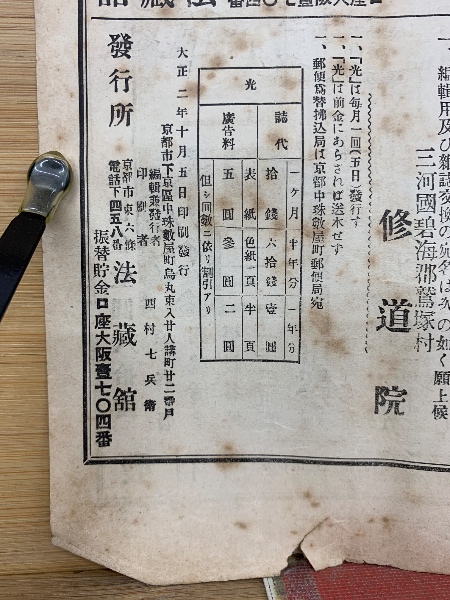 一、編輯用及び雜誌交換の宛名は次の如く願上候
三河國碧海郡鷲塚村
修道院
一、「光」は毎月一回(五日)發行す
一、「光」は前金にあらざれば送本せず
一、郵便爲替拂込局は京都中珠數屋町郵便局宛
光
誌代
一ヶ月 十年分 一年分
拾錢 六拾錢 壹圓
廣告料
表紙 色紙一頁 半頁
五圓 參圓 二圓
但シ回數ニ依リ割引アリ
大正二年十月五日印刷發行
京都市下京區中珠數屋町烏丸東入廿人講町廿二番戸
編輯兼發行者
印刷者
西村七兵衞
發行所
京都市東六條
電話下四五八番
法藏館
振替貯金口座大阪壹七〇四番